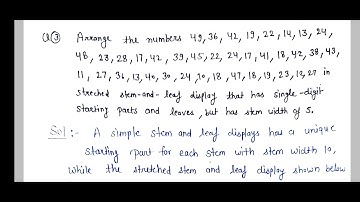 Q③ Arrange the numbers 49, 36, 42, 19, 22, 14, 13, 24,
48, 23, 28, 17, 42, 39, 45, 22, 24, 17, 41, 18, 42, 38, 43,
11, 27, 36, 13, 40, 30, 24, 10, 18, 47, 18, 19, 23, 13, 27 in
streched stem-and-leaf display that has single-digit
starting parts and leaves, but has stem width of 5.
Sol :- A simple stem and leaf displays has a unique
starting part for each stem with stem width 10,
While the stretched stem and leaf display shown below